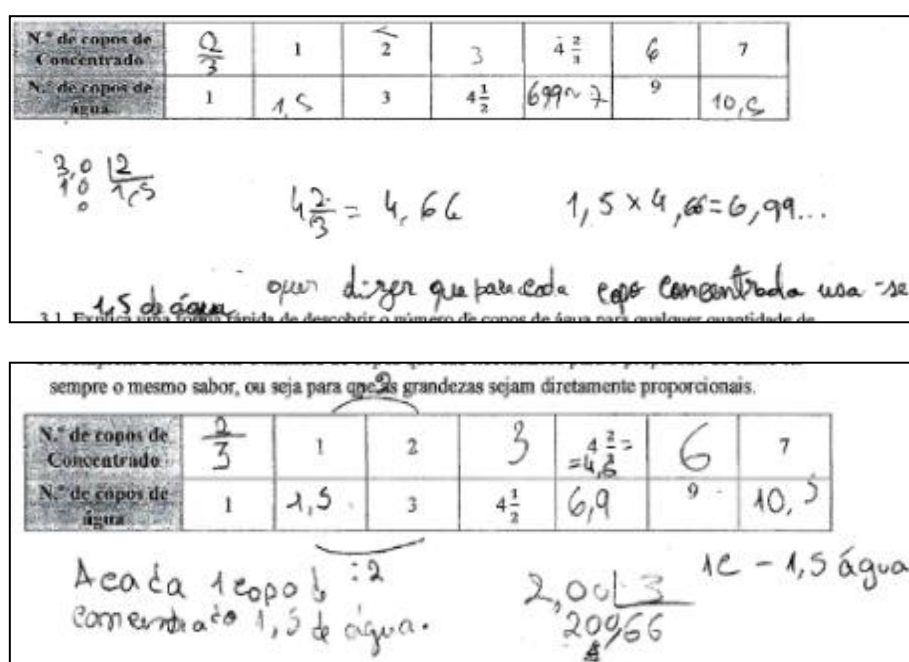 N.º de copos de Concentrado 2/3 1 2 3 4 2/3 6 7
N.º de copos de água 1 1,5 3 4 1/2 699~7 9 10,5
3,0 |2
10 1,5
0
4 2/3 = 4,66 1,5 x 4,66=6,99...
quer dizer que para cada copo concentrado usa-se
1,5 de água
3.1. Explica uma forma rápida de descobrir o número de copos de água para qualquer quantidade de
sempre o mesmo sabor, ou seja para que as grandezas sejam diretamente proporcionais.
:2
N.º de copos de Concentrado 2/3 1 2 3 4 2/3 = =4,6 6 7
N.º de copos de água 1 1,5 3 4 1/2 6,9 9 10,5
:2
A cada 1 copo de
concentrado 1,5 de água.
2,00 |3
200,66
1c - 1,5 água